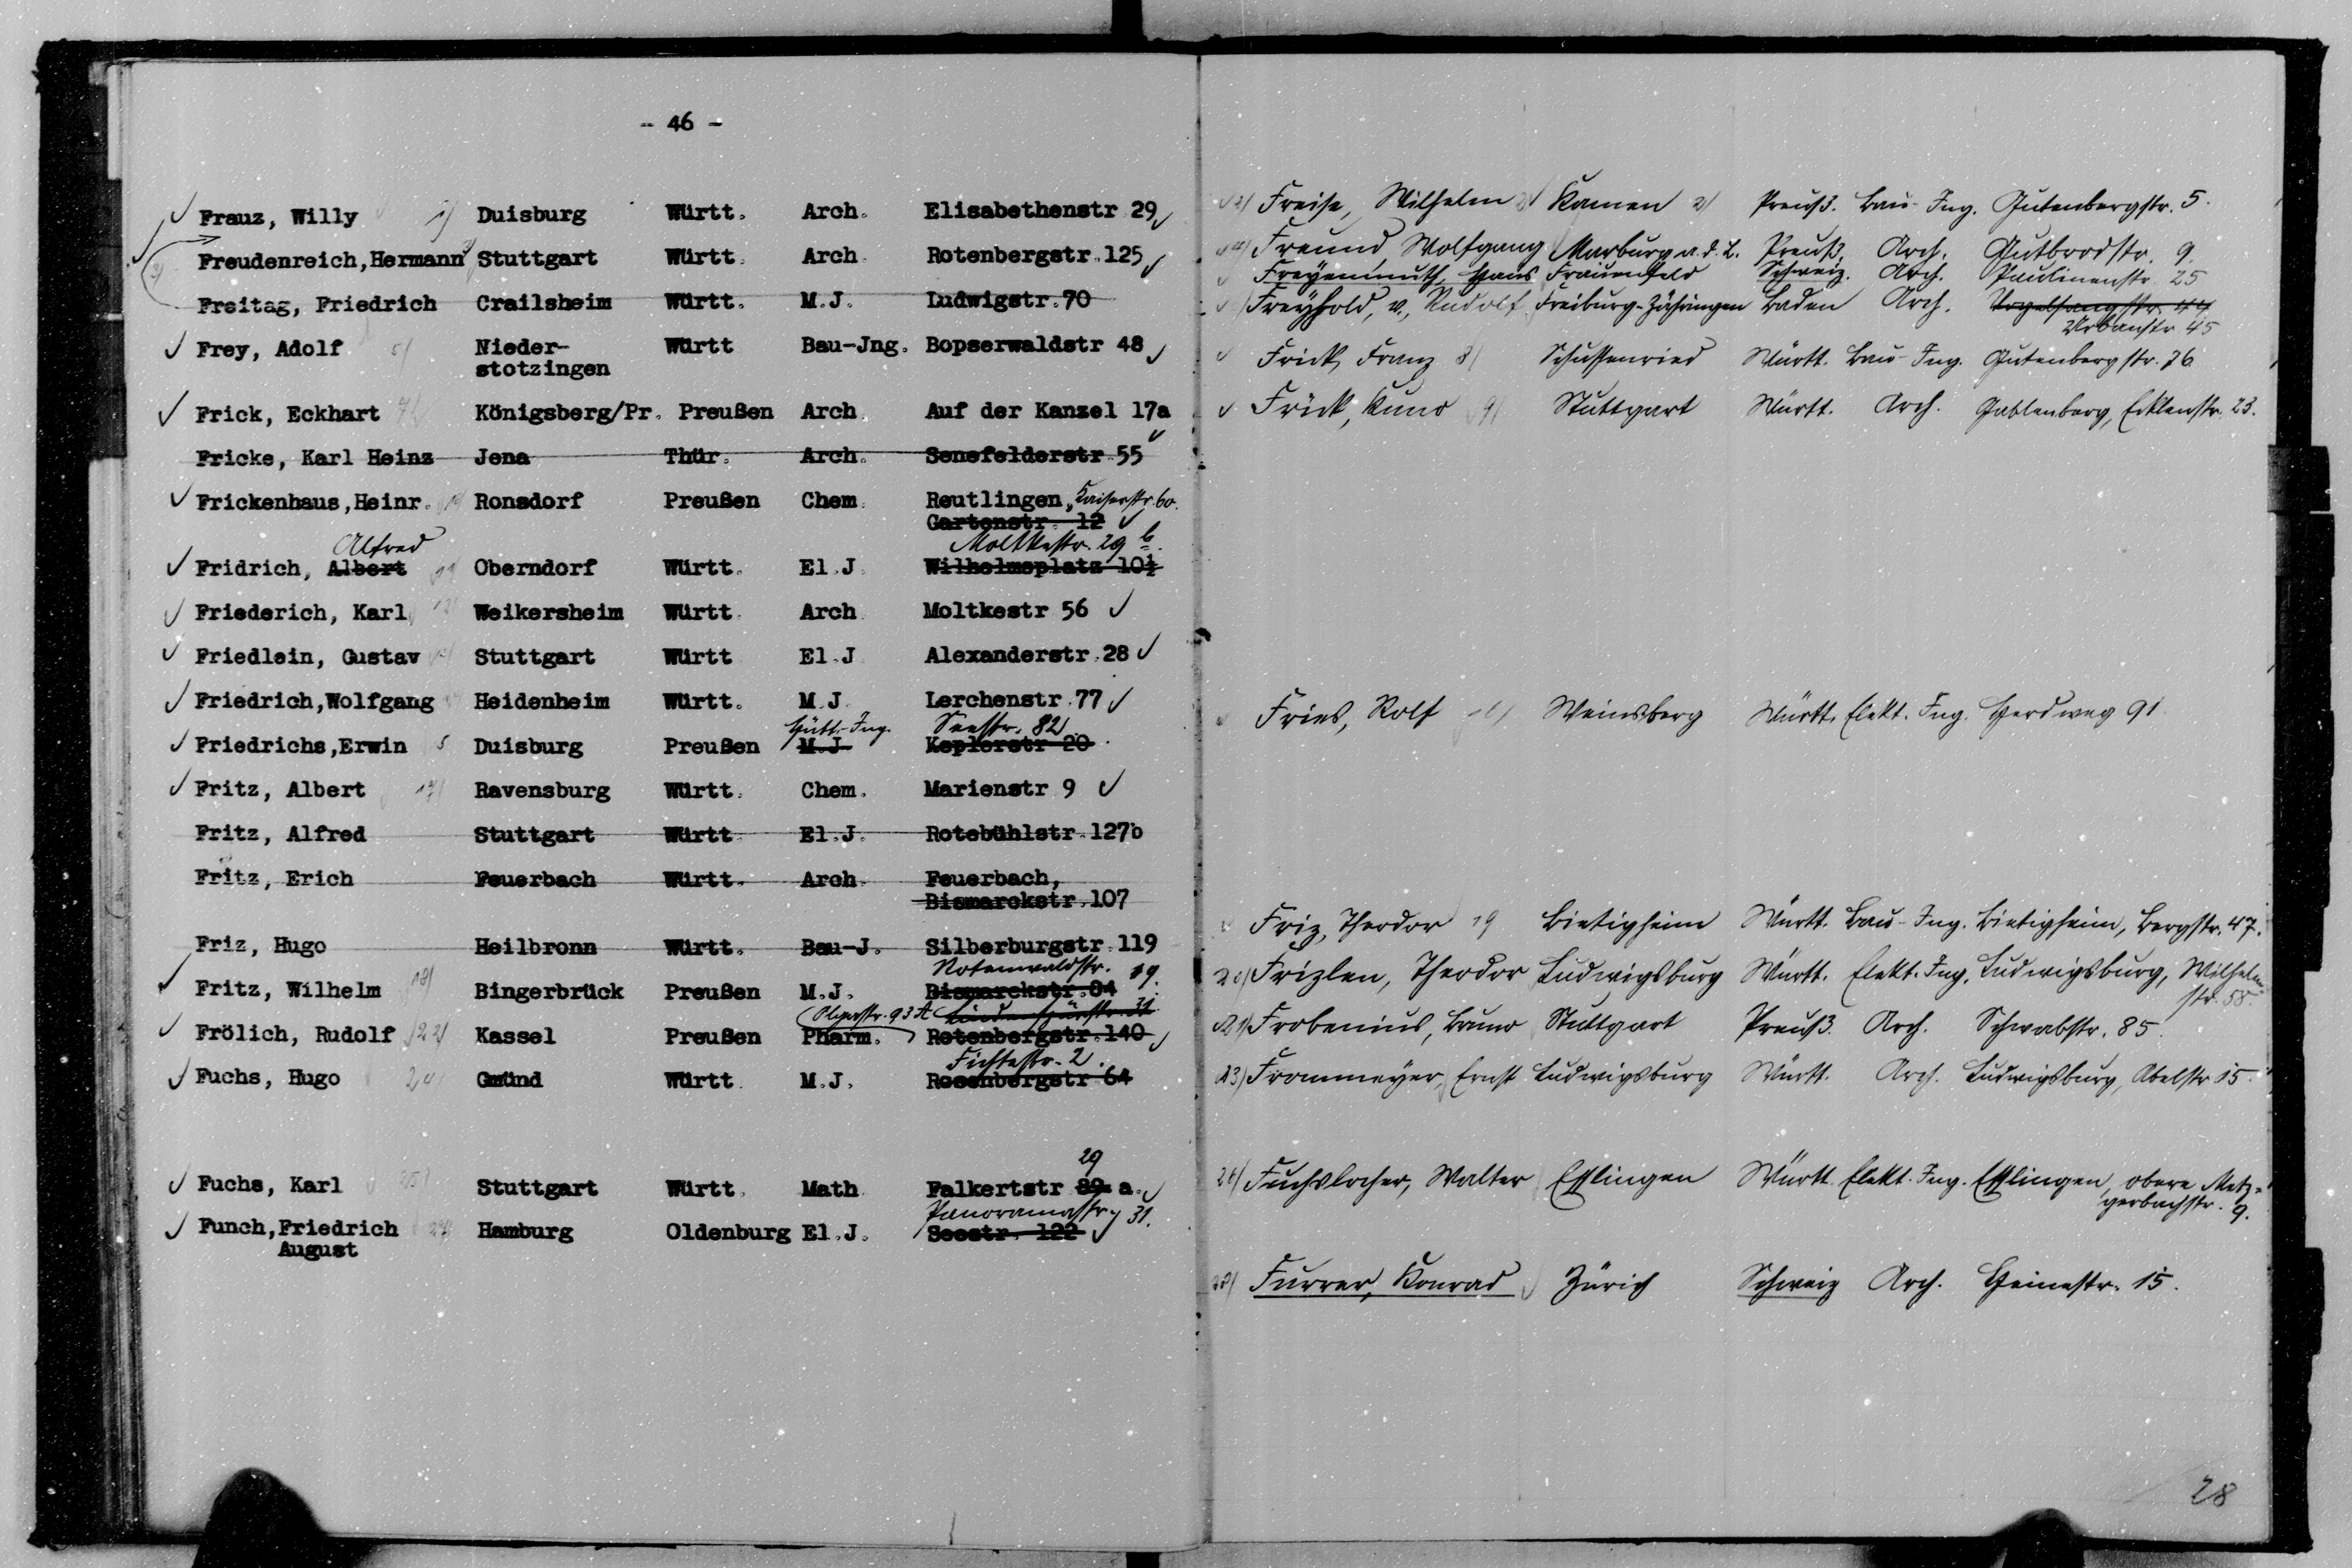 - 46 -
Frauz, Willy 1) Duisburg Württ. Arch. Elisabethenstr 29
Freudenreich, Hermann Stuttgart Württ. Arch. Rotenbergstr. 125
3)
Freitag, Friedrich Crailsheim Württ. M.J. Ludwigstr. 70
Frey, Adolf 5) Nieder- Württ Bau-Jng. Bopserwaldstr 48
stotzingen
Frick, Eckhart 7) Königsberg/Pr. Preußen Arch. Auf der Kanzel 17a
Fricke, Karl Heinz Jena Thür. Arch. Senefelderstr 55
Frickenhaus, Heinr. Ronsdorf Preußen Chem. Reutlingen, Kaiserstr. 60.
Gartenstr. 12
Alfred Moltkestr. 29 b.
Fridrich, Albert Oberndorf Württ. El.J. Wilhelmsplatz 10½
Friederich, Karl 12) Weikersheim Württ. Arch. Moltkestr 56
Friedlein, Gustav Stuttgart Württ El.J Alexanderstr. 28
Friedrich, Wolfgang Heidenheim Württ. M.J. Lerchenstr. 77
Hütt.-Ing. Seestr. 82
Friedrichs, Erwin Duisburg Preußen M.J. Keplerstr 20
Fritz, Albert 17) Ravensburg Württ. Chem. Marienstr 9
Fritz, Alfred Stuttgart Württ El.J. Rotebühlstr. 127b
Fritz, Erich Feuerbach Württ. Arch. Feuerbach,
Bismarckstr. 107
Friz, Hugo Heilbronn Württ. Bau-J. Silberburgstr. 119
Rotenwaldstr. 19.
Fritz, Wilhelm 18) Bingerbrück Preußen M.J. Bismarckstr. 84
Olgastr. 93 A Lindenspürstr. 31
Frölich, Rudolf 22) Kassel Preußen Pharm. Rotenbergstr. 140
Fichtestr. 2.
Fuchs, Hugo 24) Gmünd Württ. M.J. Rosenbergstr 64
29
Fuchs, Karl 25) Stuttgart Württ. Math. Falkertstr a.
Panoramastr. 31.
Funch, Friedrich 27) Hamburg Oldenburg El.J. Seestr. 122
August
2) Freise, Wilhelm 2) Kamen 2) Preuß. Bau-Ing. Gutenbergstr. 5.
4) Freund Wolfgang Marburg a. d. L. Preuß. Arch. Gutbrodstr. 9.
Freyenmuth, Hans Frauenfeld Schweiz. Arch. Paulinenstr. 25
Freyhold, v., Rudolf Freiburg-Zähringen Baden Arch. Vogelsangstr. 44
Urbanstr. 45
Frick, Franz 8) Schussenried Württ. Bau-Ing. Gutenbergstr. 76
Frick, Kuno 9) Stuttgart Württ. Arch. Gablenberg, Ecklenstr. 23.
Fries, Rolf Weinsberg Württ. Elekt. Ing. Herdweg 91
Friz, Theodor 19 Bietigheim Württ. Bau-Ing. Bietigheim, Bergstr. 47.
20) Frizlen, Theodor Ludwigsburg Württ. Elekt. Ing. Ludwigsburg, Wilhelm-
str. 58.
21) Frobenius, Bruno Stuttgart Preuß. Arch. Schwabstr. 85.
23) Frommeyer, Ernst Ludwigsburg Württ. Arch. Ludwigsburg, Abelstr. 15.
26) Fuchslocher, Walter Esslingen Württ. Elekt. Ing. Esslingen, obere Metz-
gerbachstr. 9.
28) Furrer, Konrad Zürich Schweiz Arch. Heinestr. 15.
28